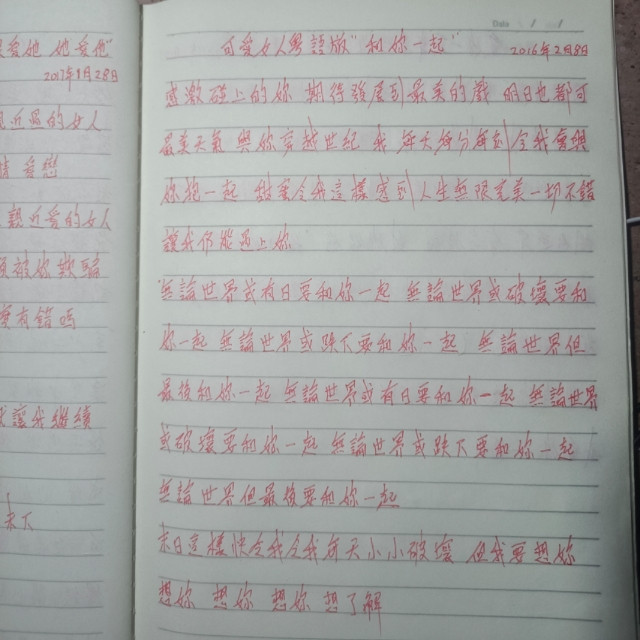 愛他 她愛他"
2017年1月28日
近愛的女人
親近愛的女人
被你欺騙
有錯嗎
讓我繼續
末下
Date
可愛女人粵語版"和你一起" 2016年2月8日
感激碰上的妳 期待發展到最美的戲 明日也都可
最美天氣 與你穿越世紀 我每天每分每刻 令我會與
你抱一起 甜蜜令我這樣感到 人生無限完美一切不錯
讓我仍能遇上你
無論世界或有日要和妳一起 無論世界或破壞要和
妳一起 無論世界或跌下要和妳一起 無論世界但
最後和妳一起 無論世界或有日要和妳一起 無論世界
或破壞要和妳一起 無論世界或跌下要和妳一起
無論世界但最後要和妳一起
末日這樣快令我令我每天小小破壞 但我要想妳
想妳 想妳 想妳 想了解